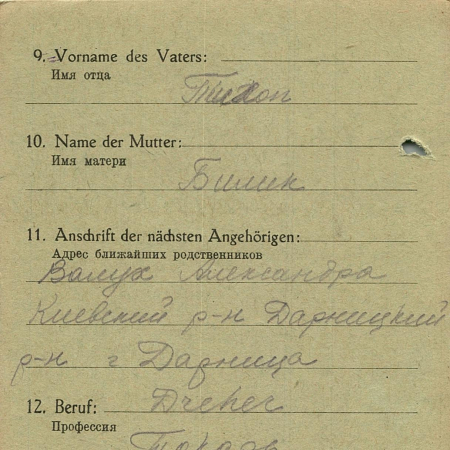 9. Vorname des Vaters:
Имя отца
Тихон
10. Name der Mutter:
Имя матери
Билик
11. Anschrift der nächsten Angehörigen:
Адрес ближайших родственников
Валух Александра
Киевский р-н Дарницкий
р-н г Дарница
12. Beruf: Dreher
Профессия
Токарь